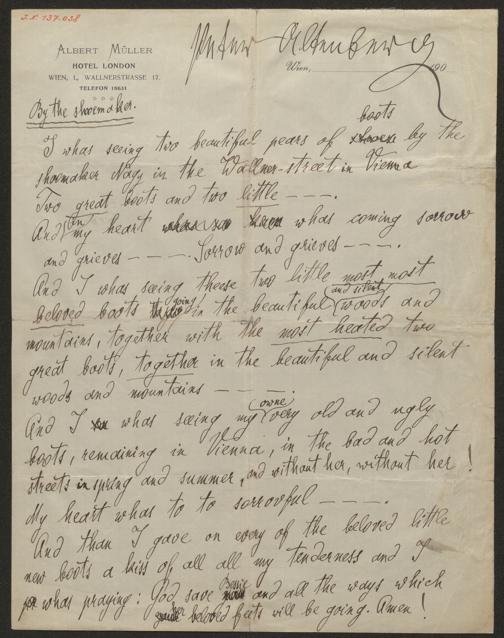 J.N. 137.038
Peter Altenberg
ALBERT MÜLLER
HOTEL LONDON
WIEN, I., WALLNERSTRASSE 17.
TELEFON 18631
Wien, 190
By the shoemaker.
boots
I whas seeing two beautiful pears of by the
shoemaker Nagy in the Wallner-street in Vienna
Two great boots and two little – – –.
And in my heart whas coming sorrow
and grieves – – –. Sorrow and grieves – – –.
And I whas seeing theese two little most, most
beloved boots going in the beautiful and silent woods and
mountains, together with the most heated two
great boots, together in the beautiful and silent
woods and mountains – – –.
And I whas seeing my owne very old and ugly
boots, remaining in Vienna, in the bad and hot
streets in spring and summer, and without her, without her!
My heart whas to to sorrovful – – –.
And than I gave on every of the beloved little
new boots a kiss of all all my tenderness and I
whas praying: God save Bessie and all the ways which
her beloved feets will be going. Amen!